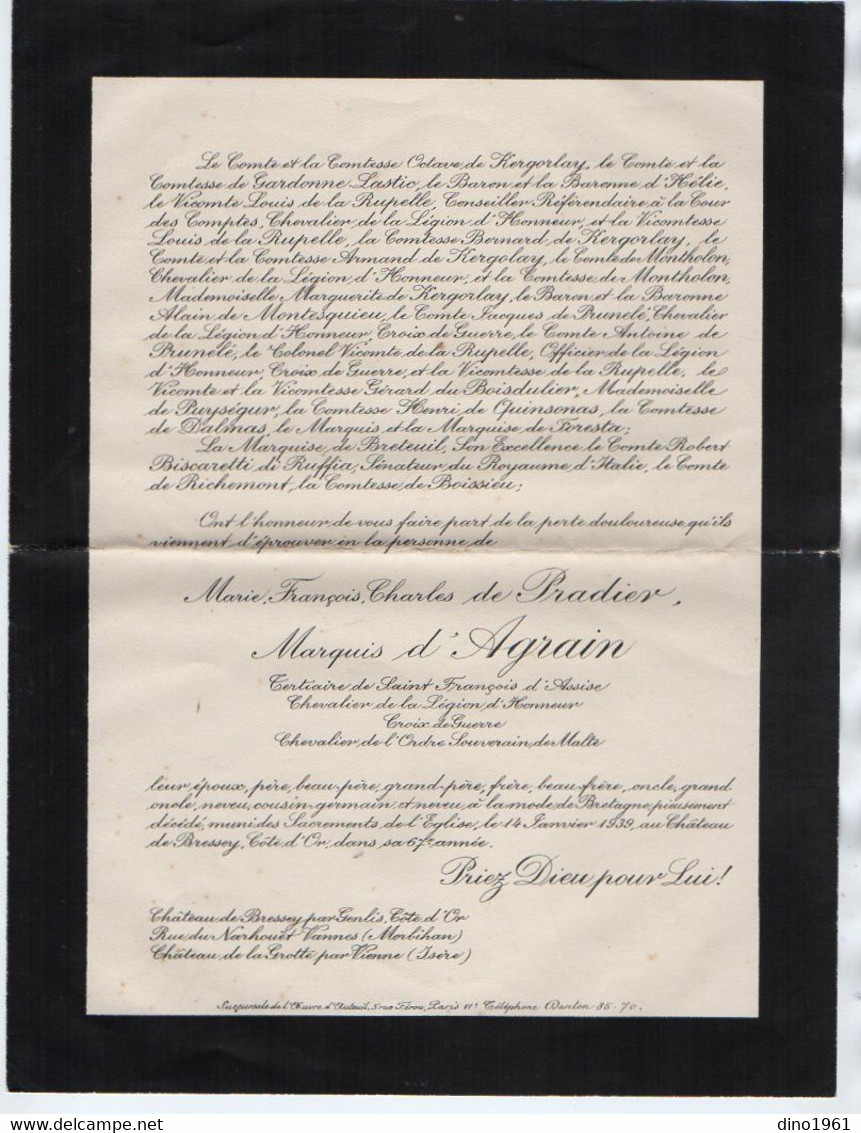 Le Comte et la Comtesse Octave de Kergorlay, le Comte et la
Comtesse de Gardonne-Lastic, le Baron et la Baronne d'Hélie,
le Vicomte Louis de la Rupelle, Conseiller Référendaire à la Cour
des Comptes, Chevalier de la Légion d'Honneur, et la Vicomtesse
Louis de la Rupelle, la Comtesse Bernard de Kergorlay, le
Comte et la Comtesse Armand de Kergolay, le Comte de Montholon,
Chevalier de la Légion d'Honneur, et la Comtesse de Montholon,
Mademoiselle Marguerite de Kergorlay, le Baron et la Baronne
Alain de Montesquieu, le Comte Jacques de Prunelé, Chevalier
de la Légion d'Honneur, Croix de Guerre, le Comte Antoine de
Prunelé, le Colonel Vicomte de la Rupelle, Officier de la Légion
d'Honneur, Croix de Guerre, et la Vicomtesse de la Rupelle, le
Vicomte et la Vicomtesse Gérard du Boisdulier, Mademoiselle
de Puységur, la Comtesse Henri de Quinsonas, la Comtesse
de Dalmas, le Marquis et la Marquise de Foresta;
La Marquise de Breteuil, Son Excellence le Comte Robert
Biscaretti di Ruffia, Sénateur du Royaume d'Italie, le Comte
de Richemont, la Comtesse de Boissieu;
Ont l'honneur de vous faire part de la perte douloureuse qu'ils
viennent d'éprouver en la personne de
Marie, François, Charles de Pradier,
Marquis d'Agrain
Tertiaire de Saint François d'Assise
Chevalier de la Légion d'Honneur
Croix de Guerre
Chevalier de l'Ordre Souverain de Malte
leur époux, père, beau-père, grand-père, frère, beau-frère, oncle, grand
oncle, neveu, cousin-germain et neveu à la mode de Bretagne, pieusement
décédé, muni des Sacrements de l'Eglise, le 14 Janvier 1939, au Château
de Bressey, Côte d'Or, dans sa 67e année.
Priez Dieu pour Lui!
Château de Bressey par Genlis, Côte d'Or
Rue du Narhouët Vannes (Morbihan)
Château de la Grotte par Vienne (Isère)
Succursale de l'Œuvre d'Auteuil, 5 rue Férou, Paris VIe Téléphone Danton 85-70.
dino1961